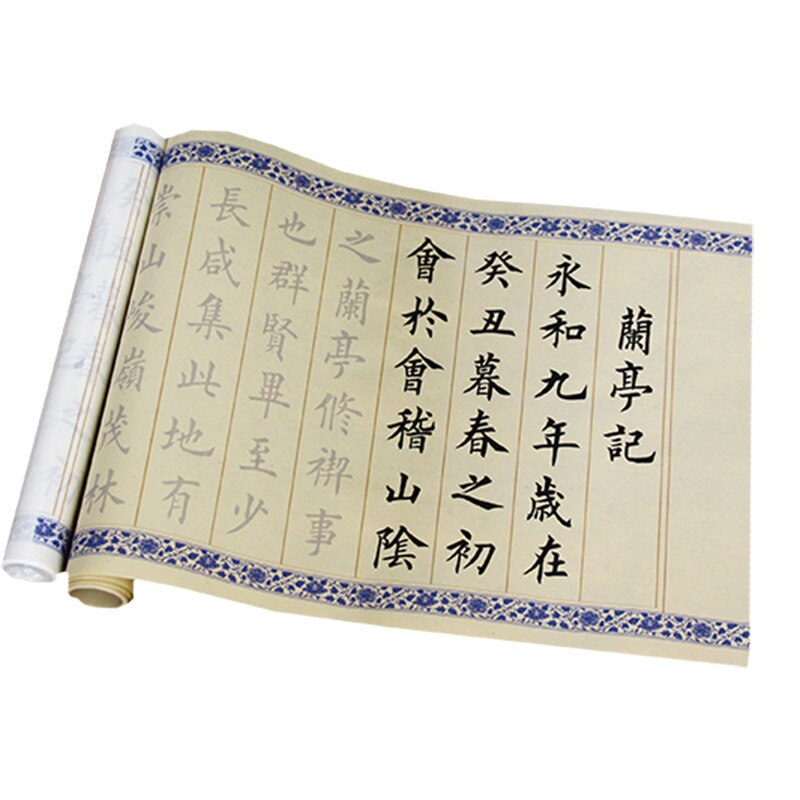 蘭亭記
永和九年歲在
癸丑暮春之初
會於會稽山陰
之蘭亭修禊事
也群賢畢至少
長咸集此地有
崇山峻嶺茂林